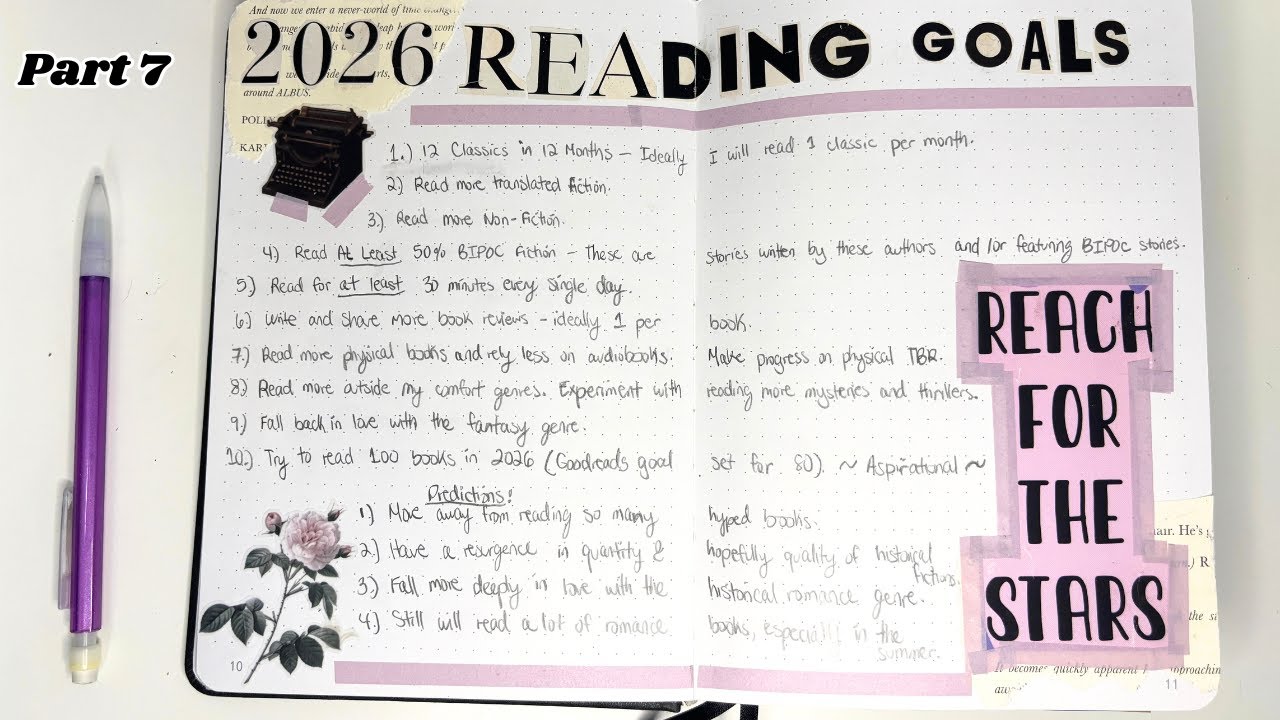 Part 7
And now we enter a never world of time change
around ALBUS.
2026 READING GOALS
1.) 12 Classics in 12 Months – Ideally I will read 1 classic per month.
2) Read more translated fiction.
3.) Read more Non-Fiction.
4.) Read At Least 50% BIPOC fiction – These are stories written by these authors and/or featuring BIPOC stories.
5.) Read for at least 30 minutes every single day.
6.) Write and share more book reviews – ideally 1 per book.
7.) Read more physical books and rely less on audiobooks. Make progress on physical TBR.
8.) Read more outside my comfort genres. Experiment with reading more mysteries and thrillers.
9.) Fall back in love with the fantasy genre.
10.) Try to read 100 books in 2026 (Goodreads goal set for 80). ~ Aspirational ~
Predictions!
1) Move away from reading so many hyped books.
2.) Have a resurgence in quantity & hopefully quality of historical fictions.
3) Fall more deeply in love with the historical romance genre.
4.) Still will read a lot of romance books, especially in the summer.
REACH
FOR
THE
STARS
hair. He's
R
the
It become quickly approaching
10
11